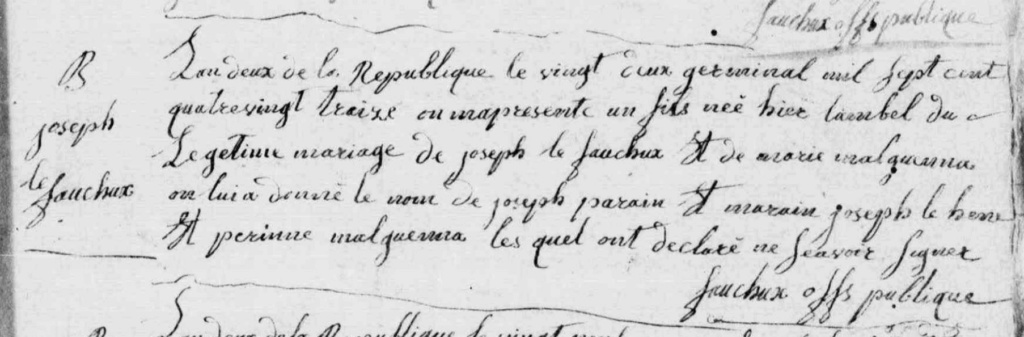 fauchux offs publique
B
joseph
le fauchux
Lan deux de la Republique le vingt deux germinal mil sept cent
quatrevingt traize on mapresente un fils neé hier lambel du
Legetime mariage de joseph le fauchux Et de marie malguenna
on lui a donné le nom de joseph parain Et marain joseph le hene
Et perinne malguenna les quel ont declaré ne scavoir signer
fauchux offs publique
Lan deux de la Republique le vingt